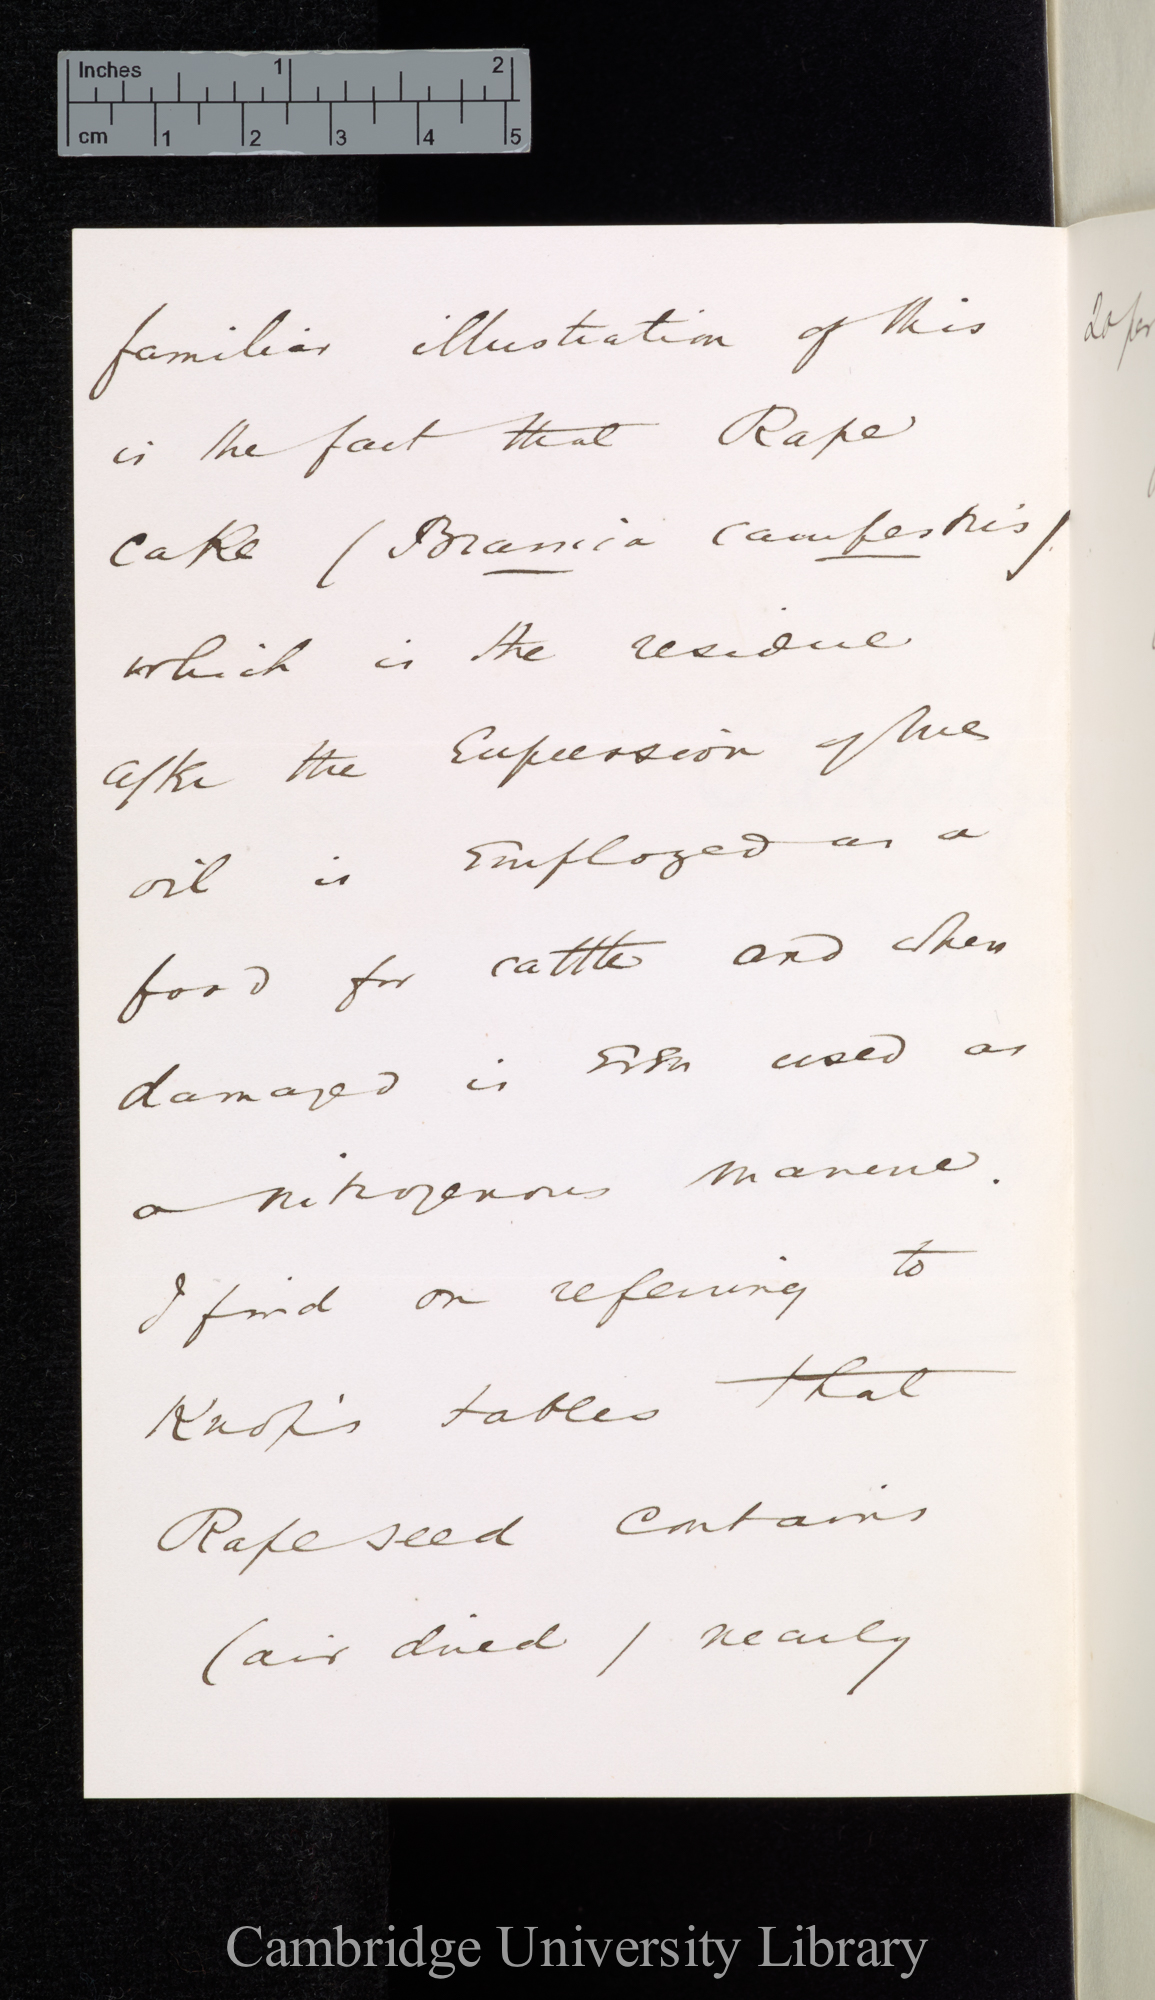 Inches 1 2
cm 1 2 3 4 5
familiar illustration of this
is the fact that Rape
Cake (Brassica campestris)
which is the residue
after the Expression of the
oil is Employed as a
food for cattle and when
damaged is Even used as
a nitrogenous manure.
I find on referring to
Knop's tables that
Rape seed contains
(air dried) nearly
20 per
Cambridge University Library